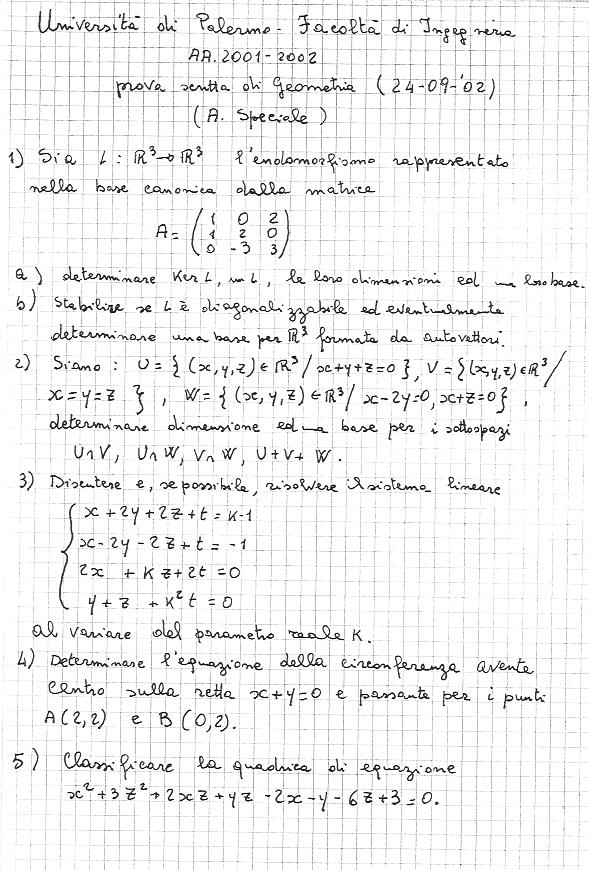 Università di Palermo - Facoltà di Ingegneria
AA. 2001-2002
prova scritta di Geometria (24-09-'02)
(A. Speciale)
1) Sia L: ℝ³→ℝ³ l'endomorfismo rappresentato
nella base canonica dalla matrice
A = (1 0 2
1 2 0
0 -3 3)
a) determinare Ker L, Im L, le loro dimensioni ed una loro base.
b) Stabilire se L è diagonalizzabile ed eventualmente
determinare una base per ℝ³ formata da autovettori.
2) Siano: U = {(x,y,z) ∈ ℝ³ / x+y+z=0}, V = {(x,y,z) ∈ ℝ³ /
x=y=z }, W = {(x,y,z) ∈ ℝ³ / x-2y=0, x+z=0},
determinare dimensione ed una base per i sottospazi
U∩V, U∩W, V∩W, U+V+W.
3) Discutere e, se possibile, risolvere il sistema lineare
{ x + 2y + 2z + t = K-1
x - 2y - 2z + t = -1
2x + Kz + 2t = 0
y + z + K²t = 0
al variare del parametro reale K.
4) Determinare l'equazione della circonferenza avente
centro sulla retta x+y=0 e passante per i punti
A(2,2) e B(0,2).
5) Classificare la quadrica di equazione
x² + 3z² + 2xz + yz - 2x - y - 6z + 3 = 0.